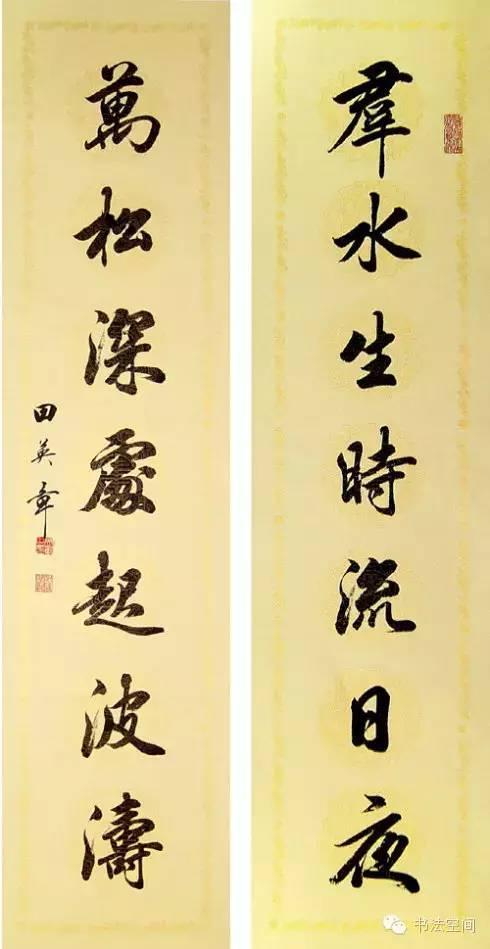 羣水生時流日夜
萬松深處起波濤
田英章
书法空间